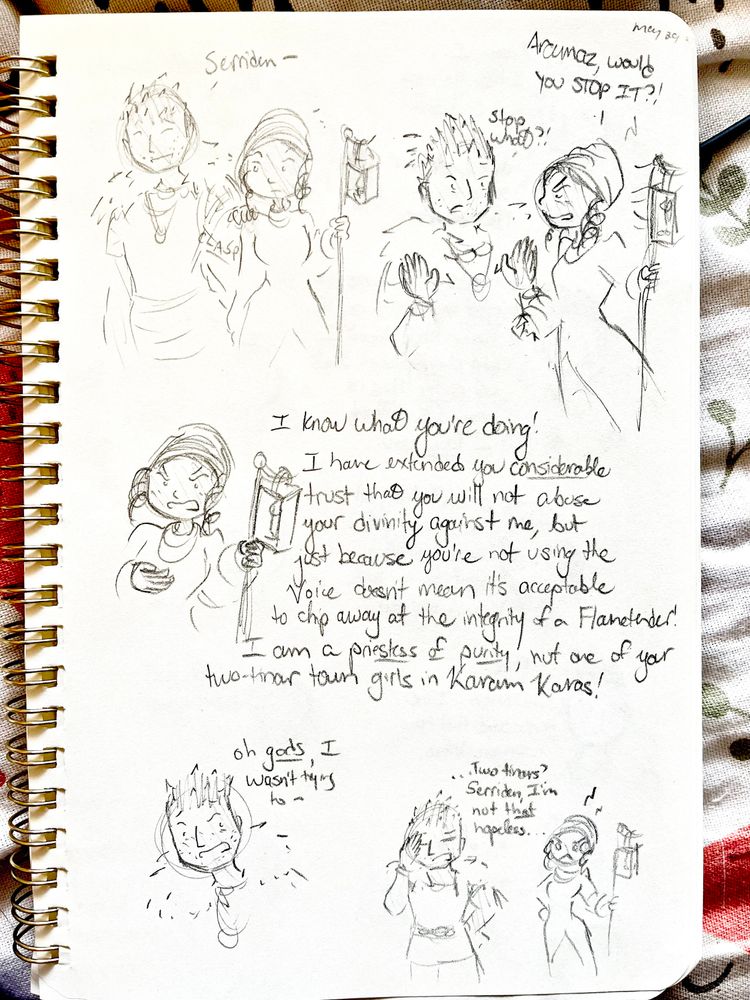 May 30
Serriden -
CLASP
Arcumaz, would
you STOP IT?!
Stop
what?!
I know what you're doing!
I have extended you considerable
trust that you will not abuse
your divinity against me, but
just because you're not using the
Voice doesn't mean it's acceptable
to chip away at the integrity of a Flametender!
I am a priestess of purity, not one of your
two-tinar town girls in Karam Karas!
oh gods, I
wasn't trying
to -
...Two tinars?
Serriden, I'm
not that
hopeless...